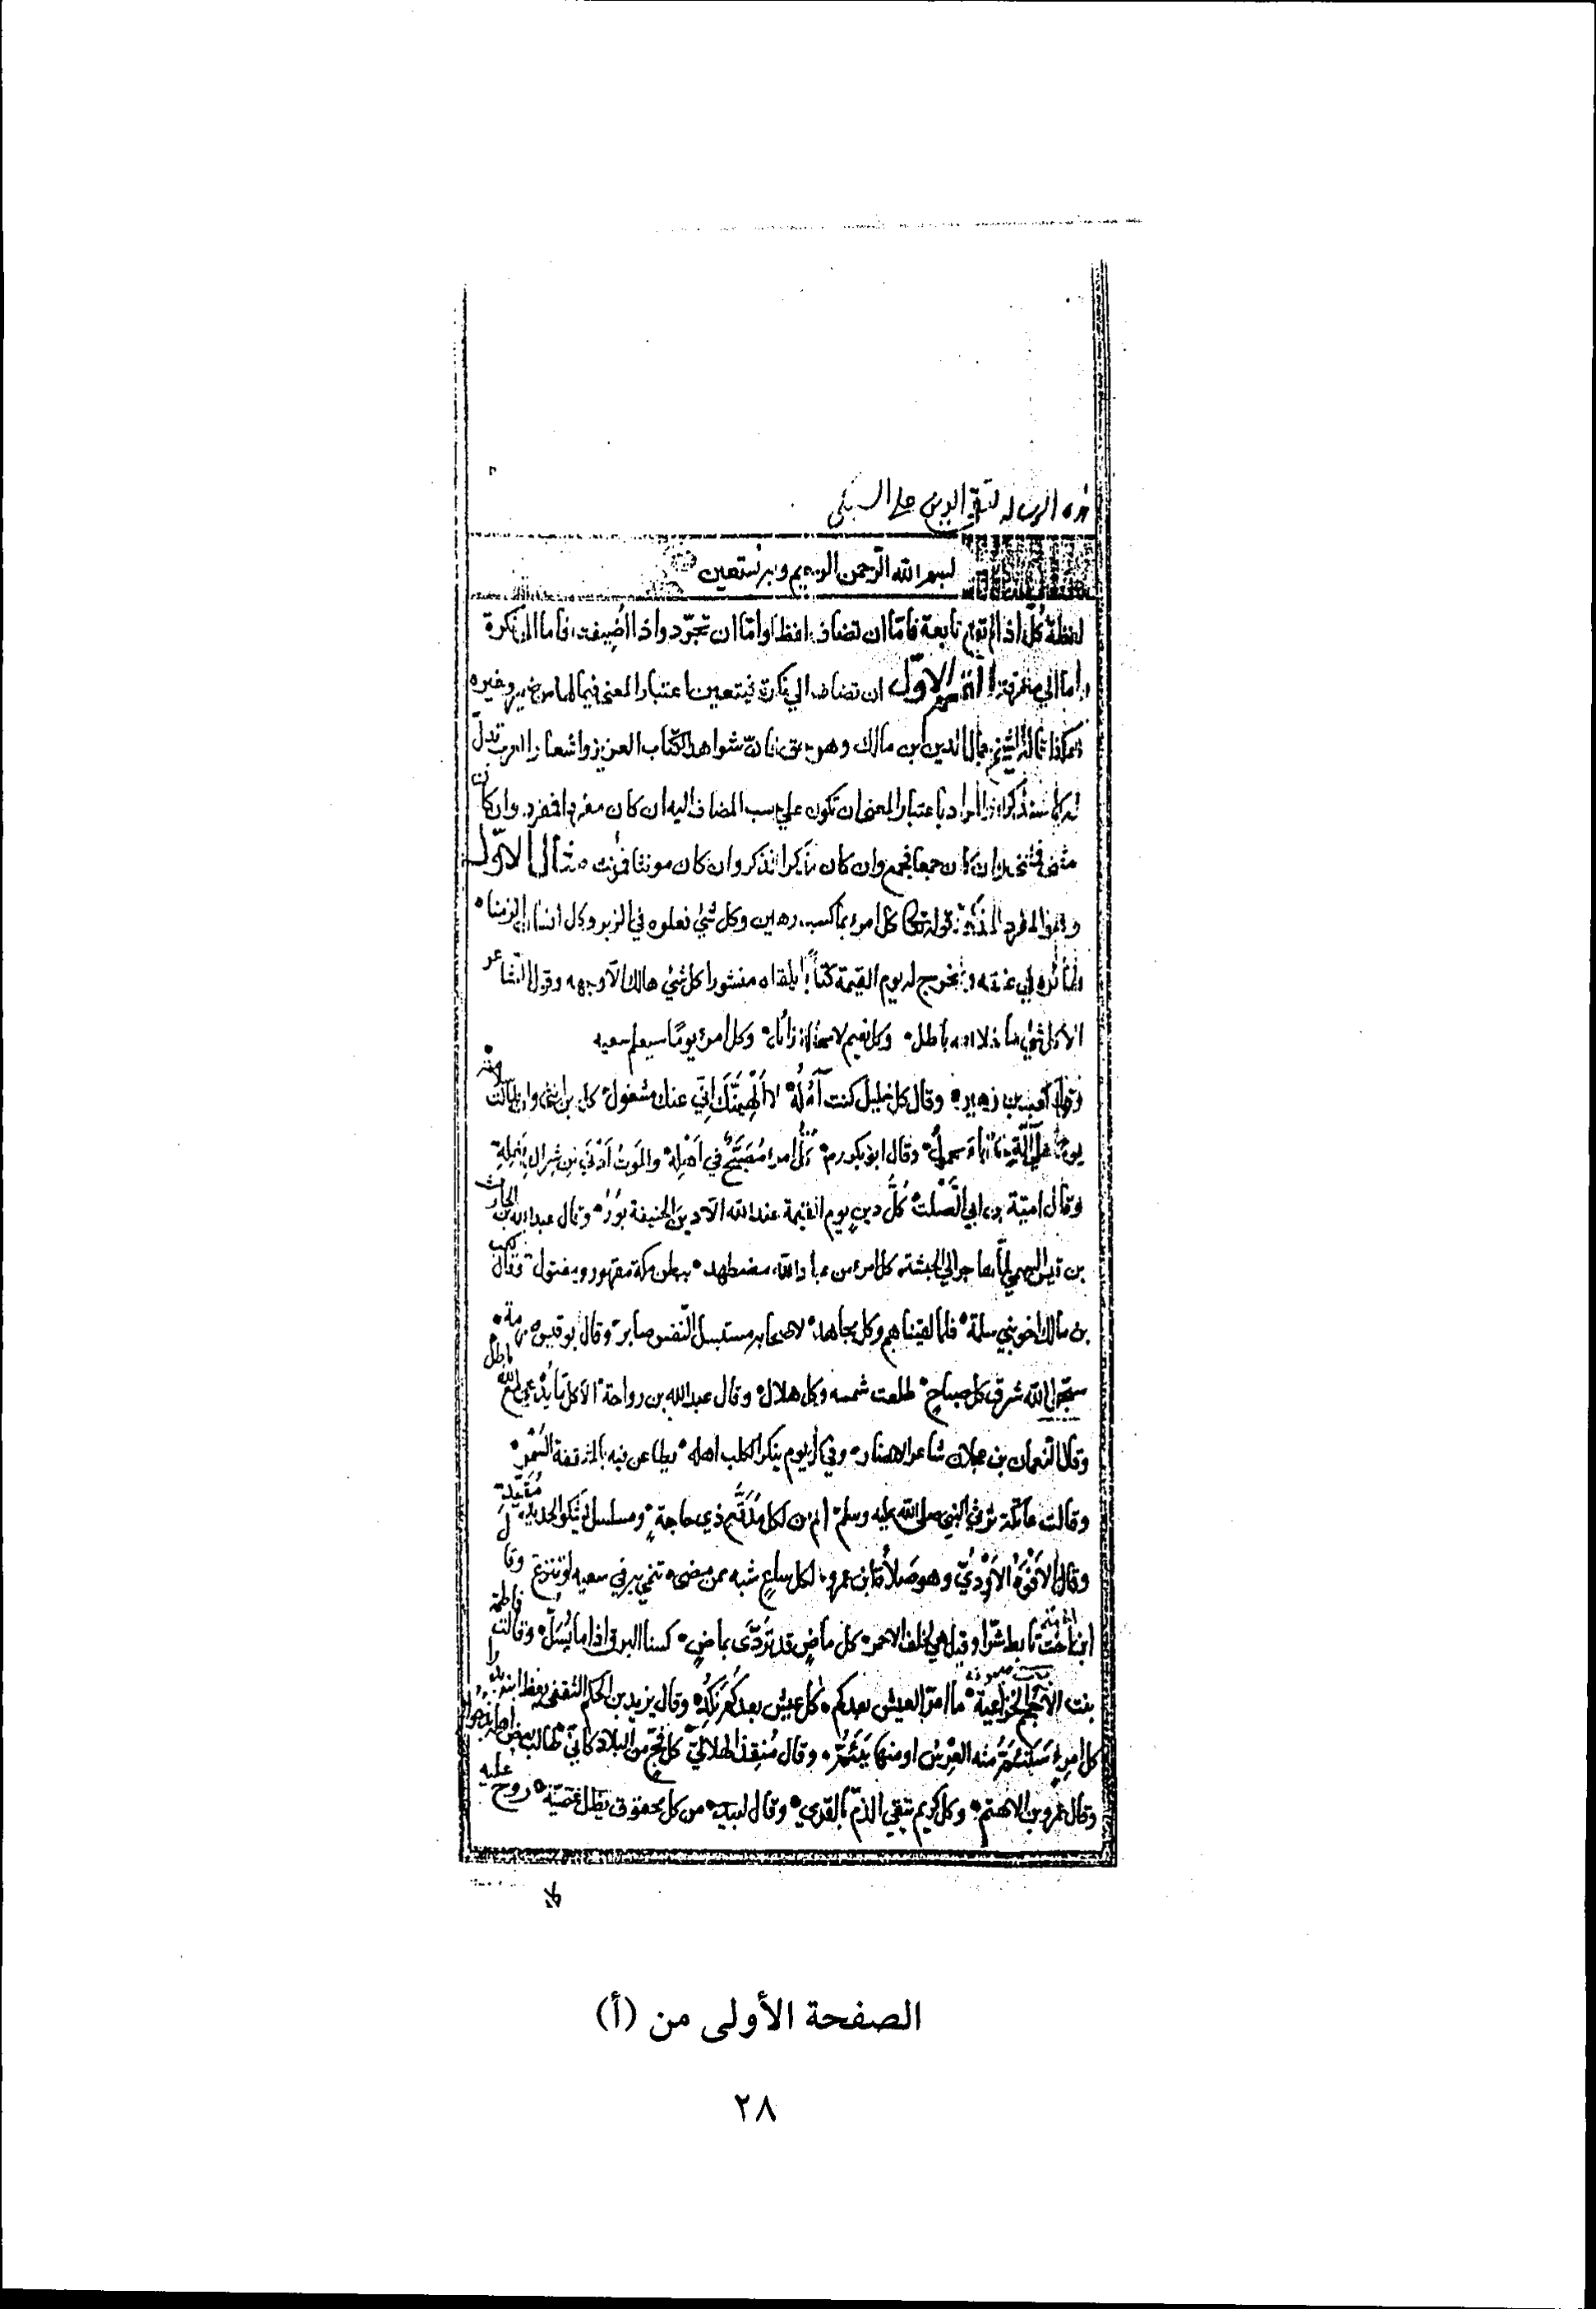 هذه الرسالة لتقي الدين علي السبكي
بسم الله الرحمن الرحيم وبه نستعين
لفظة كُلّ اذا لم تقع تابعة فامّا ان تضاف لفظا وامّا ان تجرّد واذا اُضِيفت فاما الى نكرة
واما الى معرفة القسم الاوّل ان تضاف الي نكرة فيتعين اعتبار المعنى فيما لها من ضمير وغيره
هكذا قاله الشيخ جمال الدين ابن مالك وهو حق فانّ شواهد الكتاب العزيز واشعار العرب تدلّ
له كما سنذكر والمراد باعتبار المعنى ان تكون علي حسب المضاف اليه ان كان مفردا فمفرد وان كان
مثنى فمثنى وان كان جمعا فجمع وان كان مذكرا فمذكر وان كان مونثا فمونث مثال الاوّل
وهو المفرد المذكر قوله تعالى كل امرئ بما كسب رهين وكل شئ فعلوه في الزبر وكل انسان الزمناه
طائره في عنقه ونخرج له يوم القيمة كتاباً يلقاه منشورا كل شئ هالك الا وجهه وقول الشاعر
الا كل شئ ما خلا الله باطل وكل نعيم لا محالة زائل وكل امرئ يوما سيعلم سعيه
وقول كعب بن زهير وقال كل خليل كنت آمُلُهُ لا اُلْهِيَنَّكَ اِنّي عنك مشغول كل بن انثى وان طالت سلامته
يوما علي آلة حدباء محمول وقال ابو بكر رض كُلُّ امرئ مُصَبَّحٌ في اَهْلِهِ والمَوتُ اَدْنَى مِن شِراكِ نَعْلِهِ
وقال امية بن ابي الصّلت كُلُّ دينٍ يوم القيمة عند الله الا دين الحنيفة بُورُ وقال عبد الله بن الحارث
بن قيس السهمي لما هاجر الي الحبشة كل امرئ من عباد الله مضطهد ببطن مكة مقهور ومفتون وقال كعب
بن مالك اخو بني سلمة فلما لقيناهم وكل مجاهد لاصحابه مستبسل النّفس صابر وقال ابو قيس صرمة
سبّحوا الله شرق كل صباحٍ طلعت شمسه وكل هلال وقال عبد الله بن رواحة الا كل ما يُدْعي مع الله باطل
وقال النعمان بن عجلان شاعر الانصار وفي كل يوم ينكر الكلب اهله يطاعن فيه بالمثقفة السُمْرِ
وقالت عاتكة ترثي النبي صلى الله عليه وسلم ام من لكل مُدَفَّعٍ ذي حاجةٍ ومسلسل يشكو الحديد مُقَيَّدِ
وقال الاَفْوَهُ الاَوْدِيّ وهو صَلاَءَة بن عمرو لكل ساعٍ شبه ممن مضى تنمي به في سعيه او تنزع وقال
ابن اخت تابط شرّا وقيل هي لخلف الاحمر كل ماضٍ قد تَرَدَّى بماضٍ كسنا البرق اذا ما يُسَلُّ وقالت فاطمة
بنت الاَحْجَم الخزاعية ما امرّ العيش بعدكم كل عيش بعدكم نكِدُ وقال يزيد بن الحكم الثقفي يعظ ابنه بدرا
كل امرئٍ ستئيمُ منه العِرْسُ او منها يَئيمُ وقال مُنقِذ الهلاليّ كل فجّ من البلاد كاني طالب بعض اهله بذحول
وقال عمرو بن الاهتم وكل كريم يتقي الذمّ بالقرى وقال لبيد من كل محفوف يظل عصيّه زوج عليه
الصفحة الأولى من (أ)
٢٨